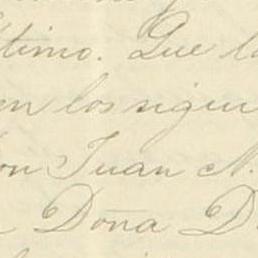 ltimo. Que la
en los siguien
on Juan N.
a Doña D